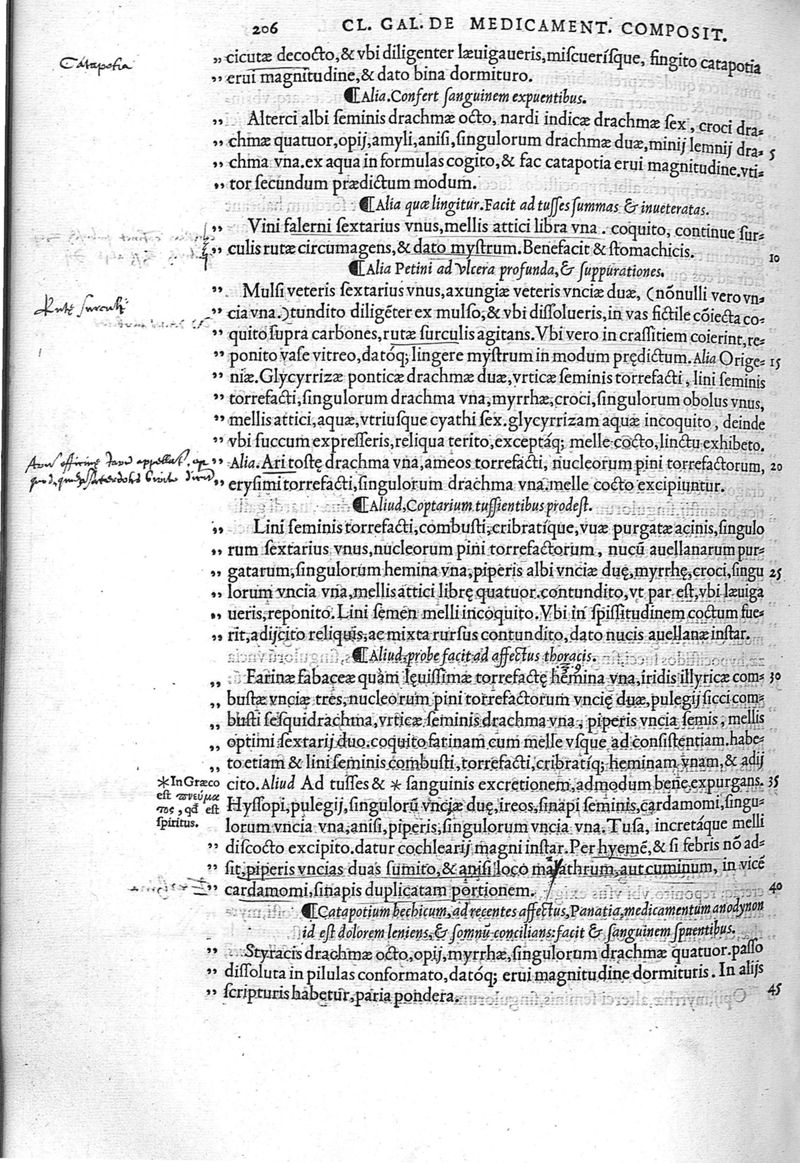 206 CL. GAL. DE MEDICAMENT. COMPOSIT.
Catapotia
„ cicutæ decocto, & vbi diligenter læuigaueris, miscuerísque, fingito catapotia
„ erui magnitudine, & dato bina dormituro.
¶Alia. Confert sanguinem expuentibus.
„ Alterci albi seminis drachmæ octo, nardi indicæ drachmæ sex, croci dra=
„ chmæ quatuor, opij, amyli, anisi, singulorum drachmæ duæ, minij lemnij dra= 5
„ chma vna. ex aqua in formulas cogito, & fac catapotia erui magnitudine. vti=
„ tor secundum prædictum modum.
¶Alia quæ lingitur. Facit ad tusses summas & inueteratas.
„ Vini falerni sextarius vnus, mellis attici libra vna. coquito, continue sur=
„ culis rutæ circumagens, & dato mystrum. Benefacit & stomachicis. 10
¶Alia Petini ad vlcera profunda, & suppurationes.
„ Mulsi veteris sextarius vnus, axungiæ veteris vnciæ duæ, (nõnulli vero vn=
Rutę surculi
„ cia vna.) tundito diligẽter ex mulso, & vbi dissolueris, in vas fictile cõiecta co=
„ quito supra carbones, rutæ surculis agitans. Vbi vero in crassitiem coierint, re=
„ ponito vase vitreo, datóq; lingere mystrum in modum prędictum. Alia Orige= 15
„ niæ. Glycyrrizæ ponticæ drachmæ duæ, vrticæ seminis torrefacti, lini seminis
„ torrefacti, singulorum drachma vna, myrrhæ, croci, singulorum obolus vnus,
„ mellis attici, aquæ, vtriusque cyathi sex. glycyrrizam aquæ incoquito, deinde
„ vbi succum expresseris, reliqua terito, exceptáq; melle cocto, linctu exhibeto.
„ Alia. Ari tostę drachma vna, ameos torrefacti, nucleorum pini torrefactorum, 20
„ erysimi torrefacti, singulorum drachma vna, melle cocto excipiuntur.
¶Aliud, Coptarium tussientibus prodest.
„ Lini seminis torrefacti, combusti, cribratíque, vuæ purgatæ acinis, singulo
„ rum sextarius vnus, nucleorum pini torrefactorum, nucũ auellanarum pur=
„ gatarum, singulorum hemina vna, piperis albi vnciæ duę, myrrhę, croci, singu 25
„ lorum vncia vna, mellis attici librę quatuor. contundito, vt par est, vbi læuiga
„ ueris, reponito. Lini semen melli incoquito. Vbi in spissitudinem coctum fue=
„ rit, adijcito reliquis, ac mixta rursus contundito, dato nucis auellanæ instar.
¶Aliud, probe facit ad affectus thoracis.
„ Farinæ fabaceæ quàm lęuissimæ torrefactę hemina vna, iridis illyricæ com= 30
„ bustæ vnciæ tres, nucleorum pini torrefactorum vncię duæ, pulegij sicci com=
„ busti sesquidrachma, vrticæ seminis drachma vna, piperis vncia semis, mellis
„ optimi sextarij duo. coquito farinam cum melle vsque ad consistentiam. habe=
„ to etiam & lini seminis combusti, torrefacti, cribratíq; heminam vnam, & adij
* In Græco est πνεύμα τος, qđ est spiritus.
cito. Aliud Ad tusses & * sanguinis excretionem, admodum bene expurgans. 35
Hyssopi, pulegij, singulorũ vnciæ duę, ireos, sinapi seminis, cardamomi, singu=
lorum vncia vna, anisi, piperis, singulorum vncia vna. Tusa, incretáque melli
„ discocto excipito. datur cochlearij magni instar. Per hyemẽ, & si febris nõ ad=
„ sit, piperis vncias duas sumito, & anisi loco marathrum, aut cuminum, in vicẽ
„ cardamomi, sinapis duplicatam portionem. 40
¶Catapotium bechicum, ad recentes affectus, Panatia, medicamentum anodynon
id est dolorem leniens, & somnũ concilians: facit & sanguinem spuentibus.
„ Styracis drachmæ octo, opij, myrrhæ, singulorum drachmæ quatuor. passo
„ dissoluta in pilulas conformato, datóq; erui magnitudine dormituris. In alijs
„ scripturis habetur, paria pondera. 45